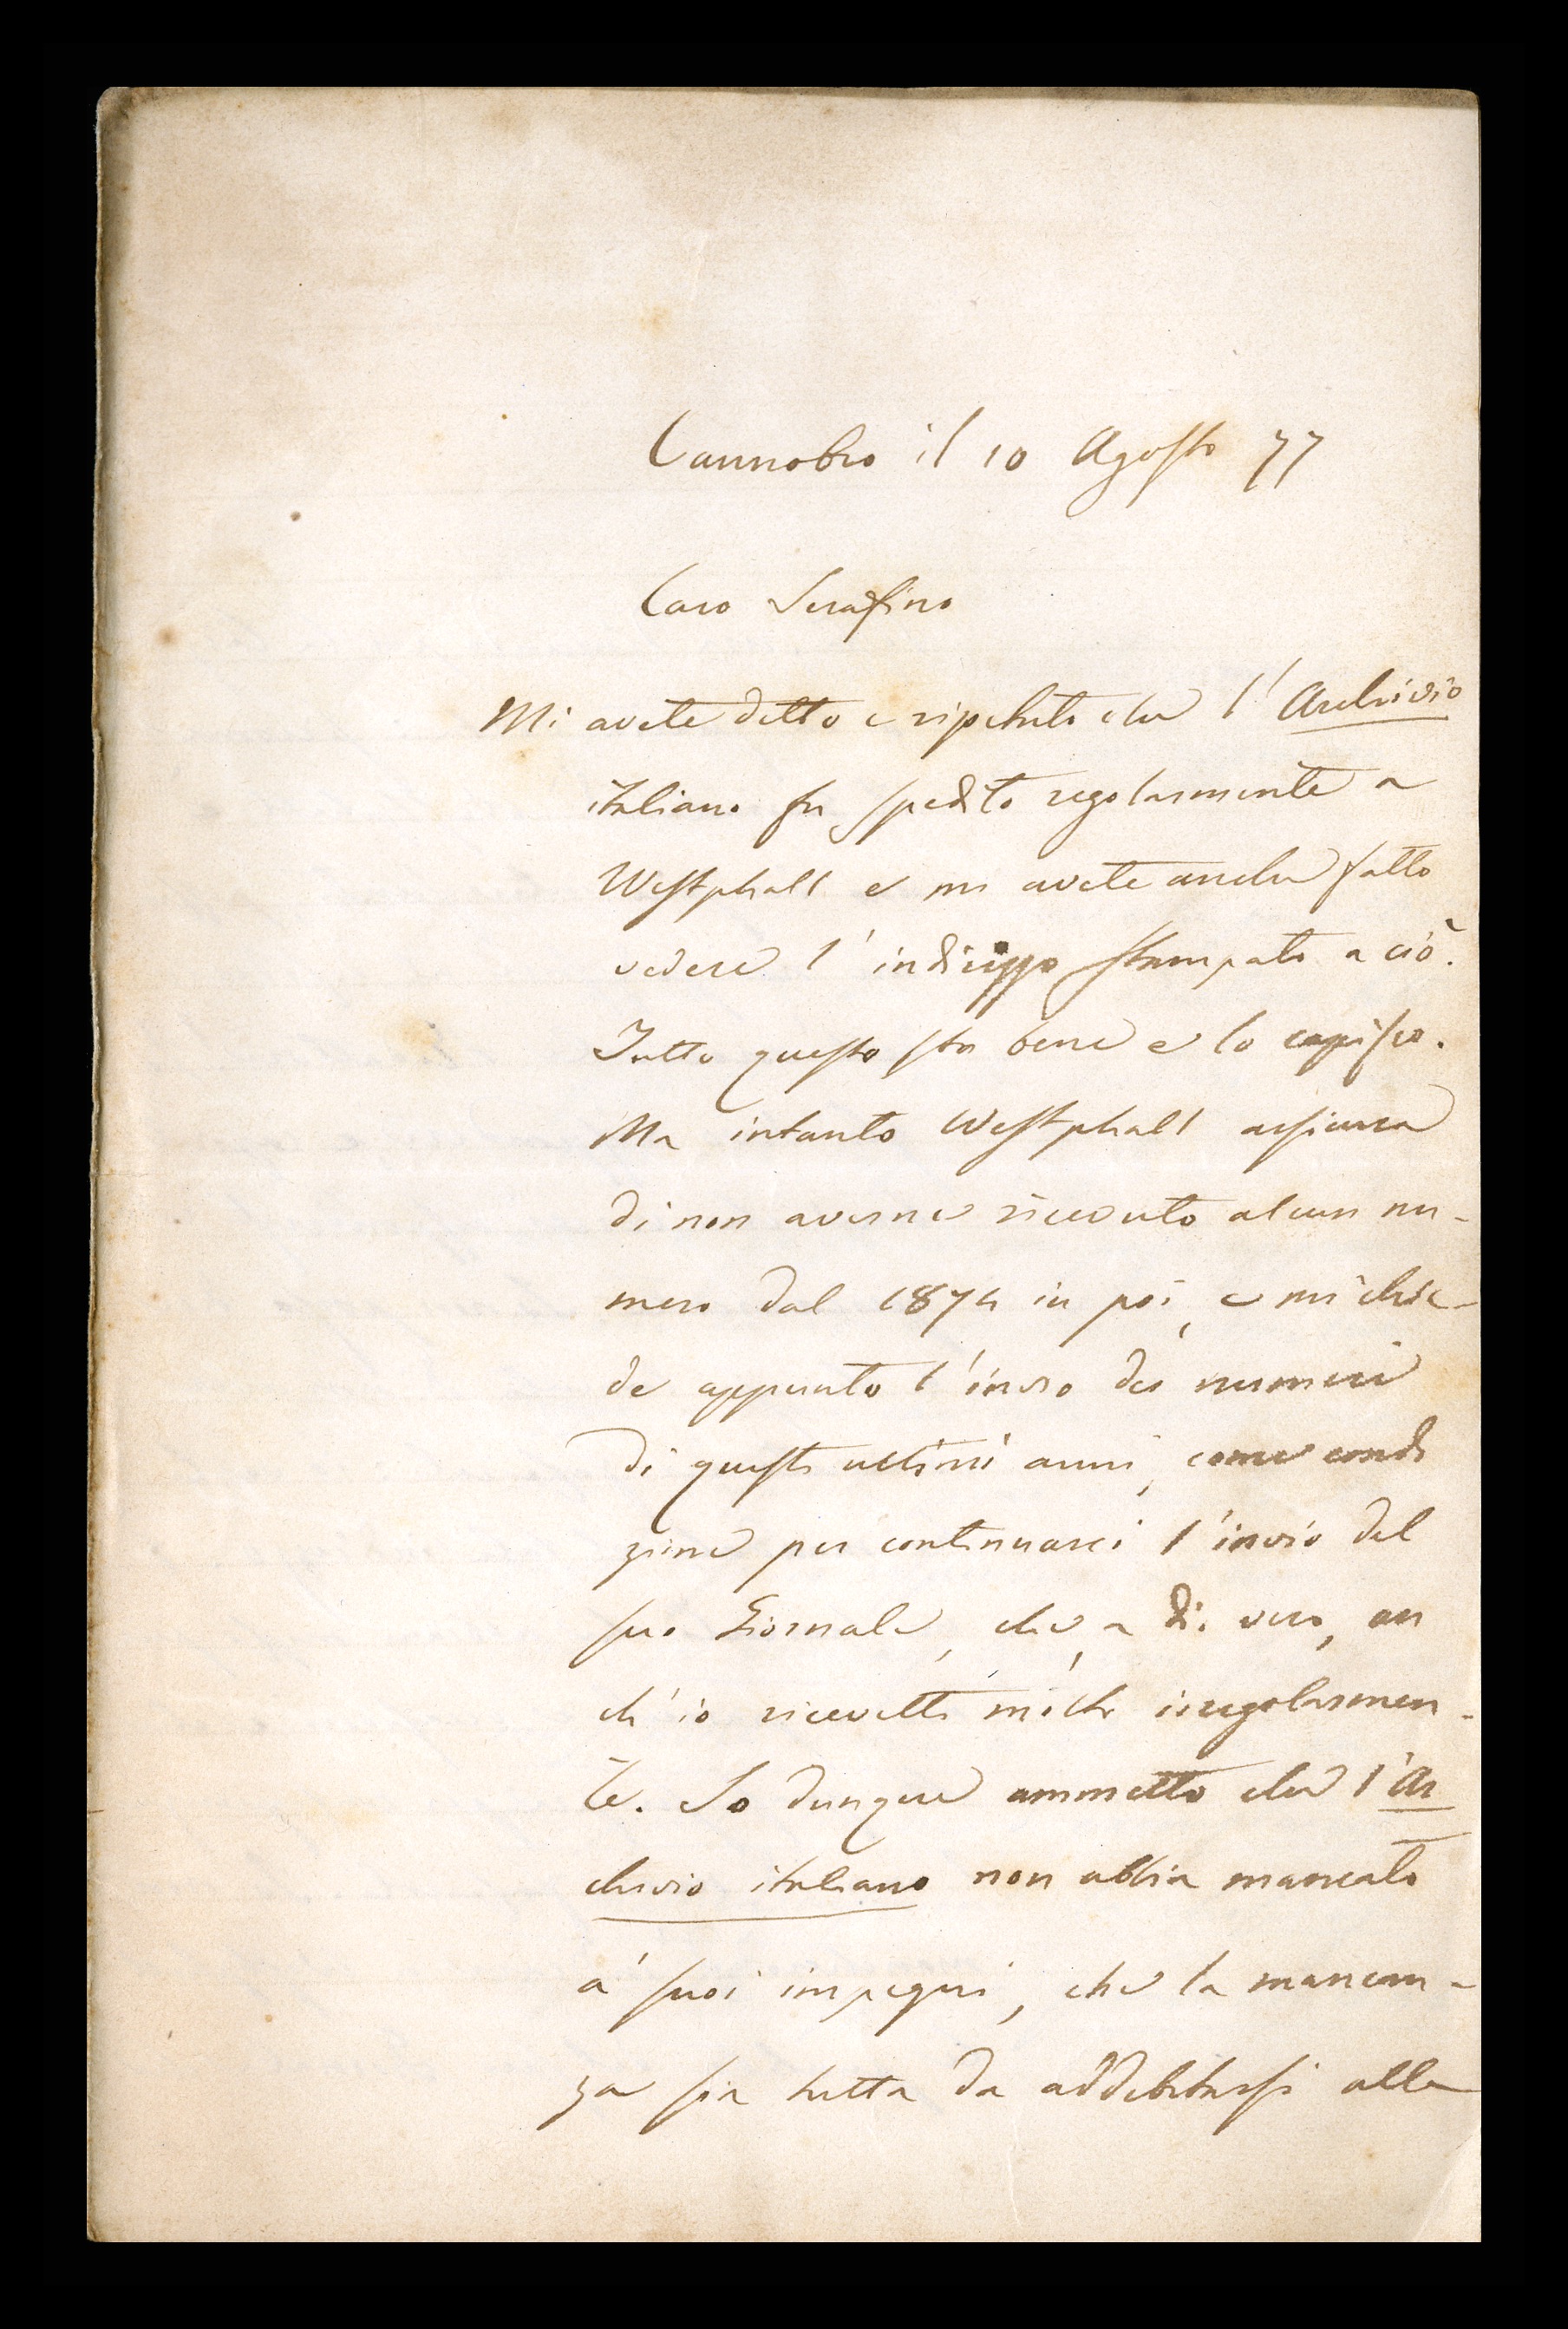 Cannobio il 10 Agosto 77
Caro Serafino
Mi avete detto e ripetuto che l'Archivio
italiano fu spedito regolarmente a
Westphall e mi avete anche fatto
vedere l'indirizzo stampato a ciò.
Tutto questo sta bene e lo capisco.
Ma intanto Westphall assicura
di non averne ricevuto alcun nu-
mero dal 1874 in poi, e mi chie-
de appunto l'invio dei numeri
di questi ultimi anni, come condi
zione per continuarci l'invio del
suo Giornale, che, a dir vero, an
ch'io ricevetti molto irregolarmen-
te. Io dunque ammetto che l'Ar
chivio italiano non abbia mancato
a' suoi impegni, che la mancan-
za sia tutta da addebitarsi alla